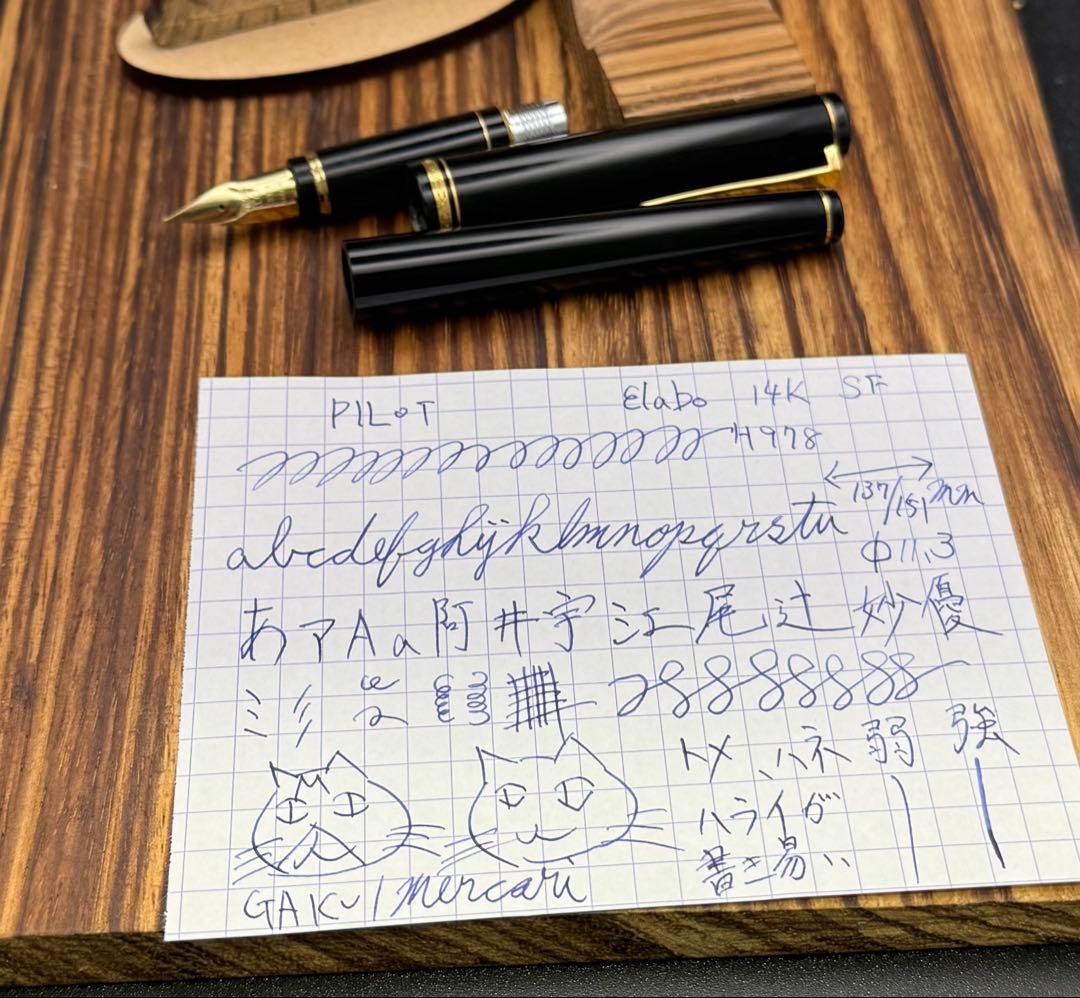 PILOT Elabo 14K SF
H978
137/151mm
abcdefghijklmnopqrstu
φ11.3
あアAa阿井宇江尾辻妙優
トメ、ハネ 弱 強
ハライが
書き易い
GAKU/mercari